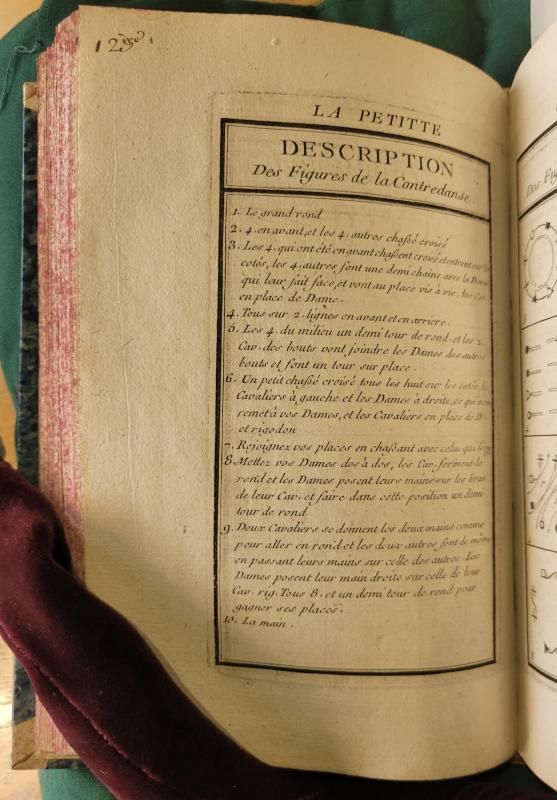 12
LA PETITTE
DESCRIPTION
Des Figures de la Contredanse
1. Le grand rond
2. 4. en avant, et les 4. autres chaßé croisé
3. Les 4. qui ont été en avant chaßent croisé et entrent sur les
cotés, les 4. autres font une demi chaine avec la Dame
qui leur fait face, et vont au place vis à vis, les Cav.
en place de Dame.
4. Tous sur 2. lignes en avant et en arriere.
5. Les 4. du milieu un demi tour de rond, et les 2.
Cav. des bouts vont joindre les Dames des autres
bouts et font un tour sur place.
6. Un petit chaßé croisé tous les huit sur les cotés, les
Cavaliers à gauche et les Dames à droite, ce qui
remet à vos Dames, et les Cavaliers en place de D.
et rigodon
7. Rejoignez vos places en chaßant avec celui qui
8. Mettez vos Dames dos à dos, les Cav. forment le
rond et les Dames posent leurs mains sur les bras
de leur Cav. et faire dans cette position un demi
tour de rond
9. Deux Cavaliers se donnent les deux mains comme
pour aller en rond et les deux autres font de même
en passant leurs mains sur celle des autres. Les
Dames posent leur main droite sur celle de leur
Cav. rig. Tous 8. et un demi tour de rond pour
gagner ses places.
10. La main.
Des Fig